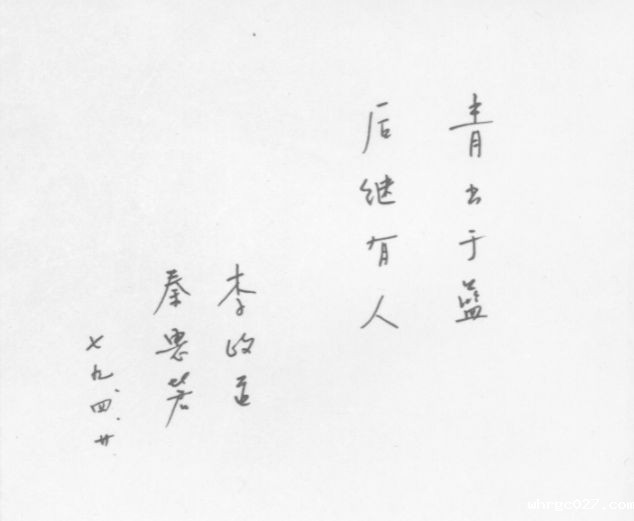 青出于蓝
后继有人
李政道
秦惠䇹
七九.四.廿.
whrgc027.com